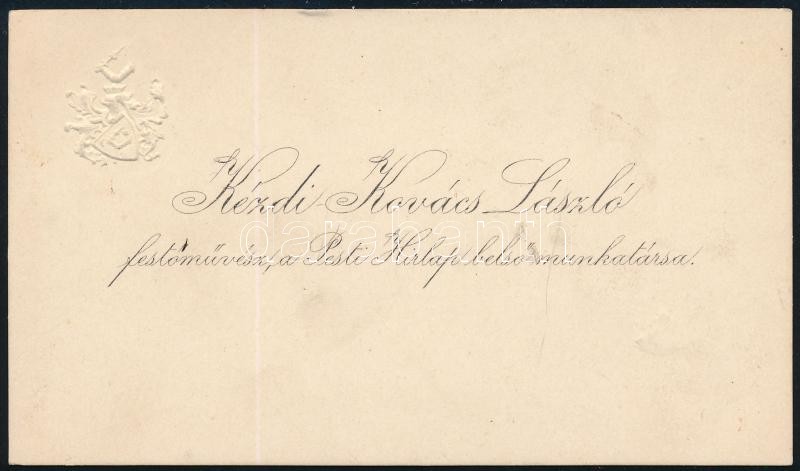 Kézdi-Kovács László
festőművész, a Pesti Hirlap belső munkatársa.